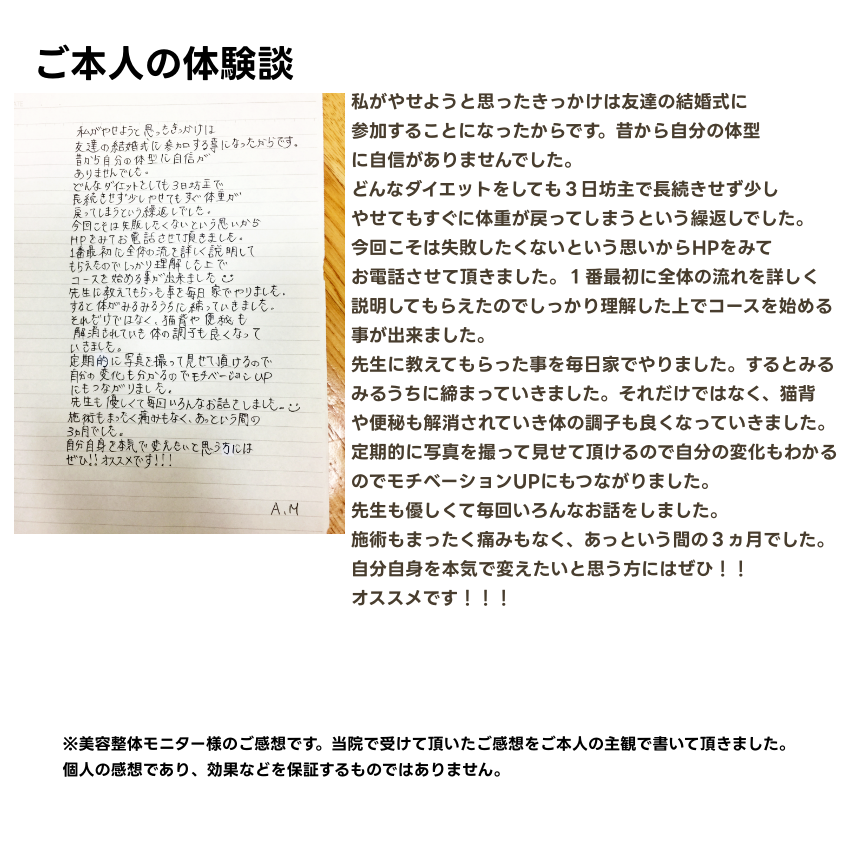 ご本人の体験談
私がやせようと思ったきっかけは
友達の結婚式に参加する事になったからです。
昔から自分の体型に自信が
ありませんでした。
どんなダイエットをしても3日坊主で
長続きせず少しやせてもすぐ体重が
戻ってしまうという繰返しでした。
今回こそは失敗したくないという思いから
HPをみてお電話させて頂きました。
1番最初に全体の流を詳しく説明して
もらえたのでしっかり理解した上で
コースを始める事が出来ました
先生に教えてもらった事を毎日家でやりました。
すると体がみるみるうちに締っていきました。
それだけではなく、猫背や便秘も
解消されていき体の調子も良くなって
いきました。
定期的に写真を撮って見せて頂けるので
自分の変化も分かるのでモチベーションUP
にもつながりました。
先生も優しくて毎回いろんなお話をしました
施術もまったく痛みもなく、あっという間の
3ヵ月でした。
自分自身を本気で変えたいと思う方には
ぜひ!!オススメです!!!
A.M
私がやせようと思ったきっかけは友達の結婚式に
参加することになったからです。昔から自分の体型
に自信がありませんでした。
どんなダイエットをしても３日坊主で長続きせず少し
やせてもすぐに体重が戻ってしまうという繰返しでした。
今回こそは失敗したくないという思いからHPをみて
お電話させて頂きました。１番最初に全体の流れを詳しく
説明してもらえたのでしっかり理解した上でコースを始める
事が出来ました。
先生に教えてもらった事を毎日家でやりました。するとみる
みるうちに締まっていきました。それだけではなく、猫背
や便秘も解消されていき体の調子も良くなっていきました。
定期的に写真を撮って見せて頂けるので自分の変化もわかる
のでモチベーションUPにもつながりました。
先生も優しくて毎回いろんなお話をしました。
施術もまったく痛みもなく、あっという間の３ヵ月でした。
自分自身を本気で変えたいと思う方にはぜひ！！
オススメです！！！
※美容整体モニター様のご感想です。当院で受けて頂いたご感想をご本人の主観で書いて頂きました。
個人の感想であり、効果などを保証するものではありません。